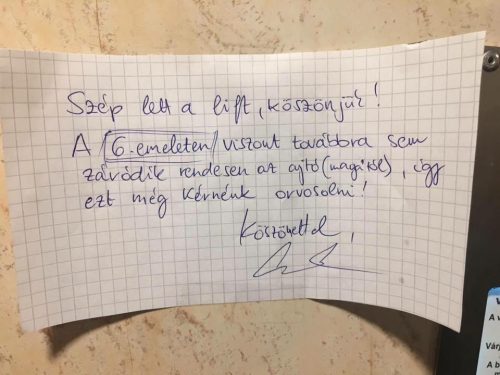 Szép lett a lift, köszönjük!
A 6. emeleten viszont továbbra sem
záródik rendesen az ajtó (magától), így
ezt még kérnénk orvosolni!
Köszönettel,
A v
Várj
A b